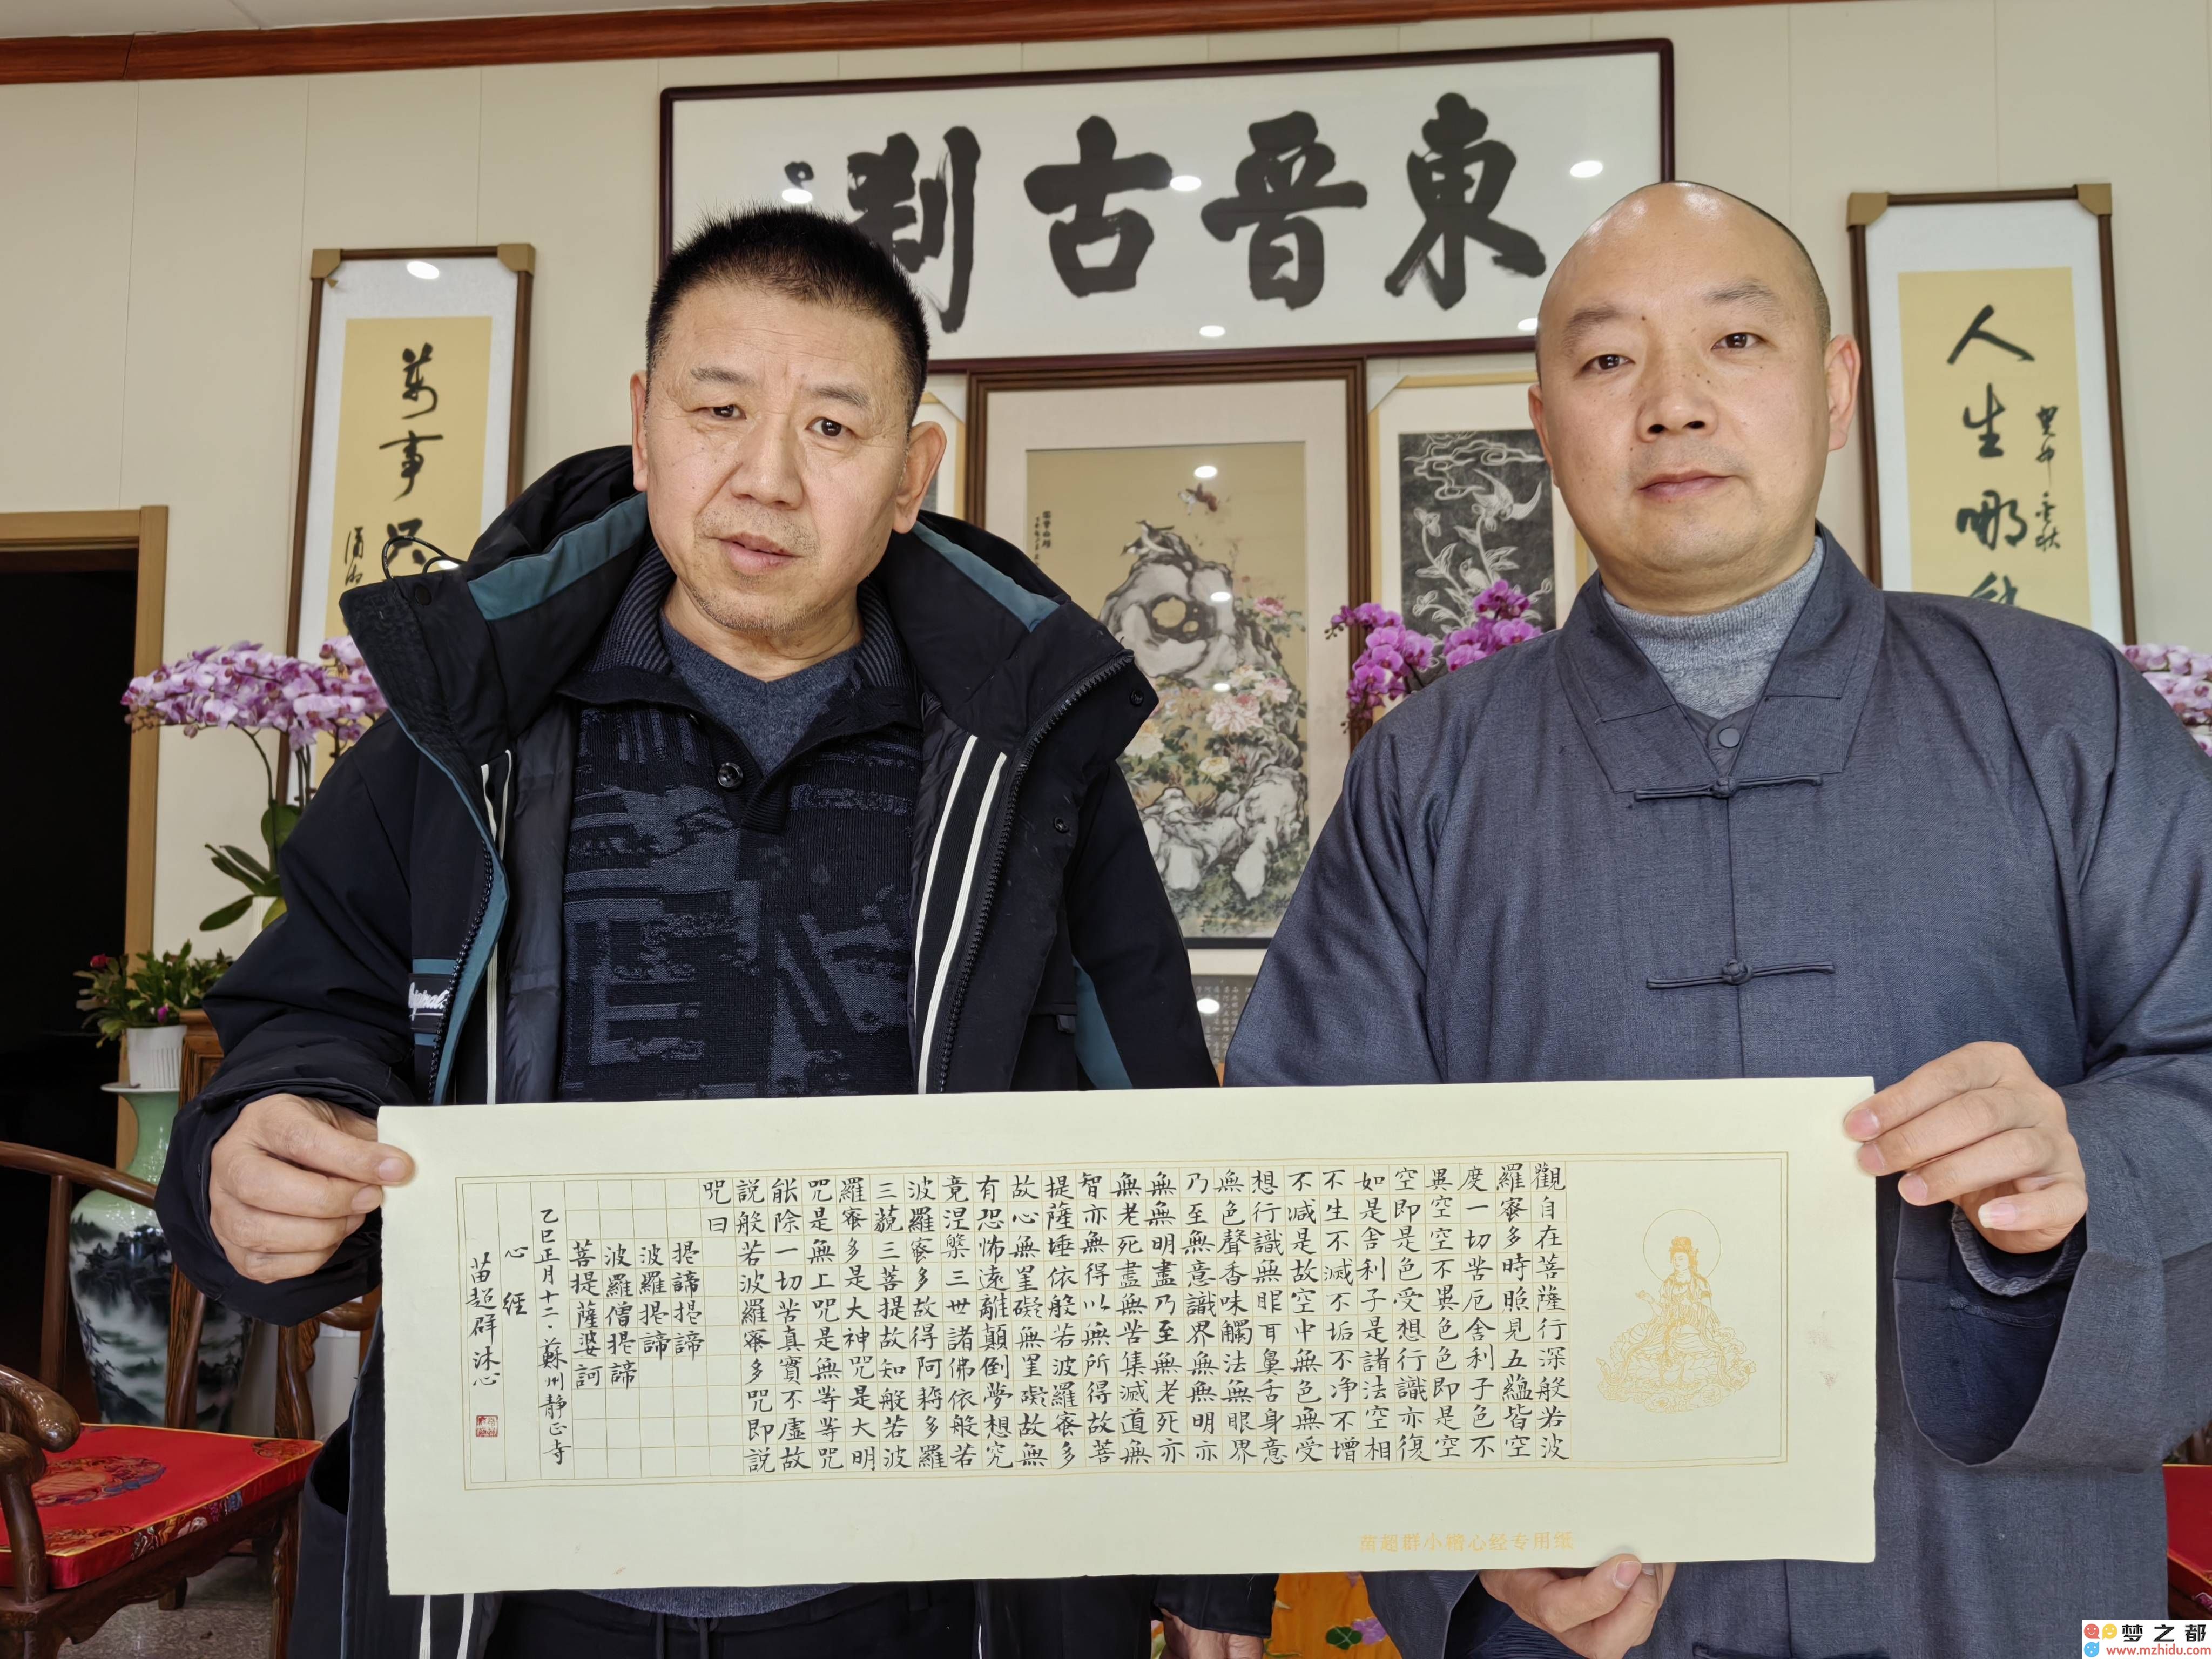 東晉古刹
人生哪
萬事
觀自在菩薩行深般若波
羅蜜多時照見五蘊皆空
度一切苦厄舍利子色不
異空空不異色色即是空
空即是色受想行識亦復
如是舍利子是諸法空相
不生不滅不垢不净不增
不減是故空中無色無受
想行識無眼耳鼻舌身意
無色聲香味觸法無眼界
乃至無意識界無無明亦
無無明盡乃至無老死亦
無老死盡無苦集滅道無
智亦無得以無所得故菩
提薩埵依般若波羅蜜多
故心無罣礙無罣礙故無
有恐怖遠離顛倒夢想究
竟涅槃三世諸佛依般若
波羅蜜多故得阿耨多羅
三藐三菩提故知般若波
羅蜜多是大神咒是大明
咒是無上咒是無等等咒
能除一切苦真實不虛故
說般若波羅蜜多咒即說
咒曰
揭諦揭諦
波羅揭諦
波羅僧揭諦
菩提薩婆訶
乙巳正月十二·蘇州靜正寺
心經
苗超群沐心
苗超群小楷心经专用纸
梦之都
www.mzhidu.com